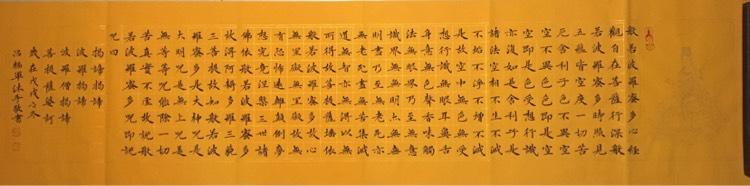 般若波羅蜜多心經
觀自在菩薩行深般
若波羅蜜多時照見
五蘊皆空度一切苦
厄舍利子色不異空
空不異色色即是空
空即是色受想行識
亦復如是舍利子是
諸法空相不生不滅
不垢不淨不增不減
是故空中無色無受
想行識無眼耳鼻舌
身意無色聲香味觸
法無眼界乃至無意
識界無無明亦無無
明盡乃至無老死亦
無老死盡無苦集滅
道無智亦無得以無
所得故菩提薩埵依
般若波羅蜜多故心
無罣礙無罣礙故無
有恐怖遠離顛倒夢
想究竟涅槃三世諸
佛依般若波羅蜜多
故得阿耨多羅三藐
三菩提故知般若波
羅蜜多是大神咒是
大明咒是無上咒是
無等等咒能除一切
苦真實不虛故說般
若波羅蜜多咒即說
咒曰
揭諦揭諦
波羅揭諦
波羅僧揭諦
菩提薩婆訶
歲在戊戌之冬
敬書